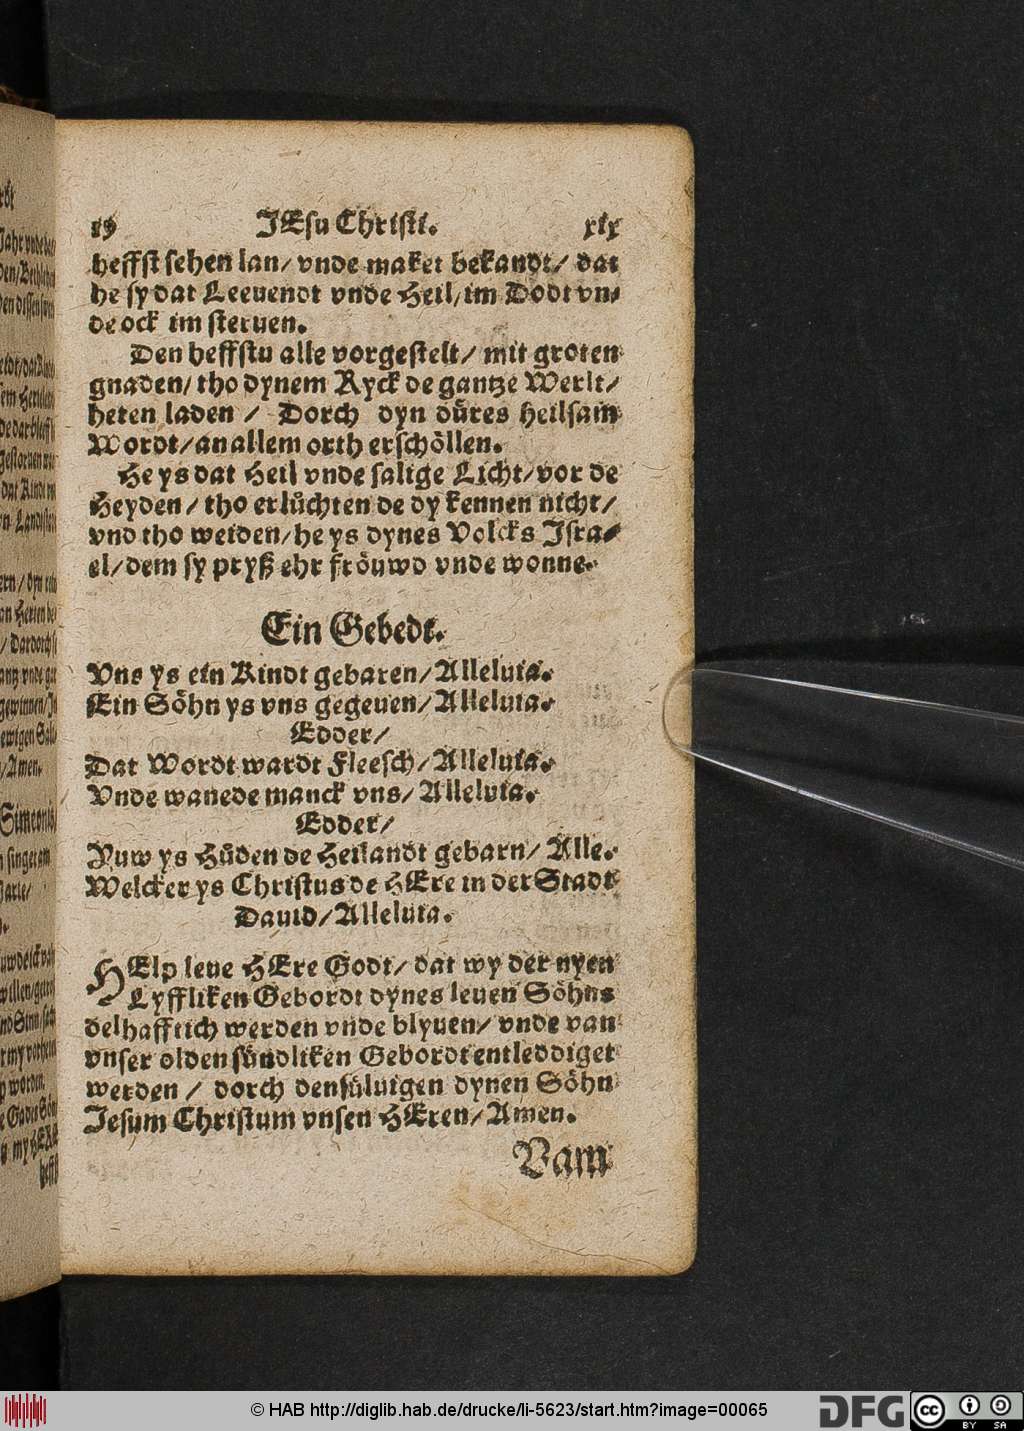 19 JEsu Christi. xix
heffst sehen lan/ vnde maket bekandt/ dat
he sy dat Leeuendt vnde Heil/ im Dodt vn⸗
de ock im steruen.
Den heffstu alle vorgestelt/ mit groten
gnaden/ tho dynem Ryck de gantze Werlt/
heten laden / Dorch dyn düres heilsam
Wordt/ an allem orth erschöllen.
He ys dat Heil vnde salige Licht/ vor de
Heyden / tho erlüchten de dy kennen nicht/
vnd tho weiden/ he ys dynes Volcks Isra⸗
el/ dem sy pryß ehr fröuwd vnde wonne.
Ein Gebedt.
Vns ys ein Kindt gebaren/ Alleluia.
Ein Söhn ys vns gegeuen/ Alleluia.
Edder/
Dat Wordt wardt Fleesch/ Alleluia.
Vnde wanede manck vns/ Alleluia.
Edder/
Nuw ys Hüden de Heilandt gebarn/ Alle.
Welcker ys Christus de HEre in der Stadt
Dauid/ Alleluia.
HElp leue HEre Godt/ dat wy der nyen
Lyffliken Gebordt dynes leuen Söhns
delhafftich werden vnde blyuen/ vnde van
vnser olden sündliken Gebordt entleddiget
werden / dorch densüluigen dynen Söhn
Jesum Christum vnsen HEren/ Amen.
Vam
© HAB http://diglib.hab.de/drucke/li-5623/start.htm?image=00065
DFG
cc BY SA